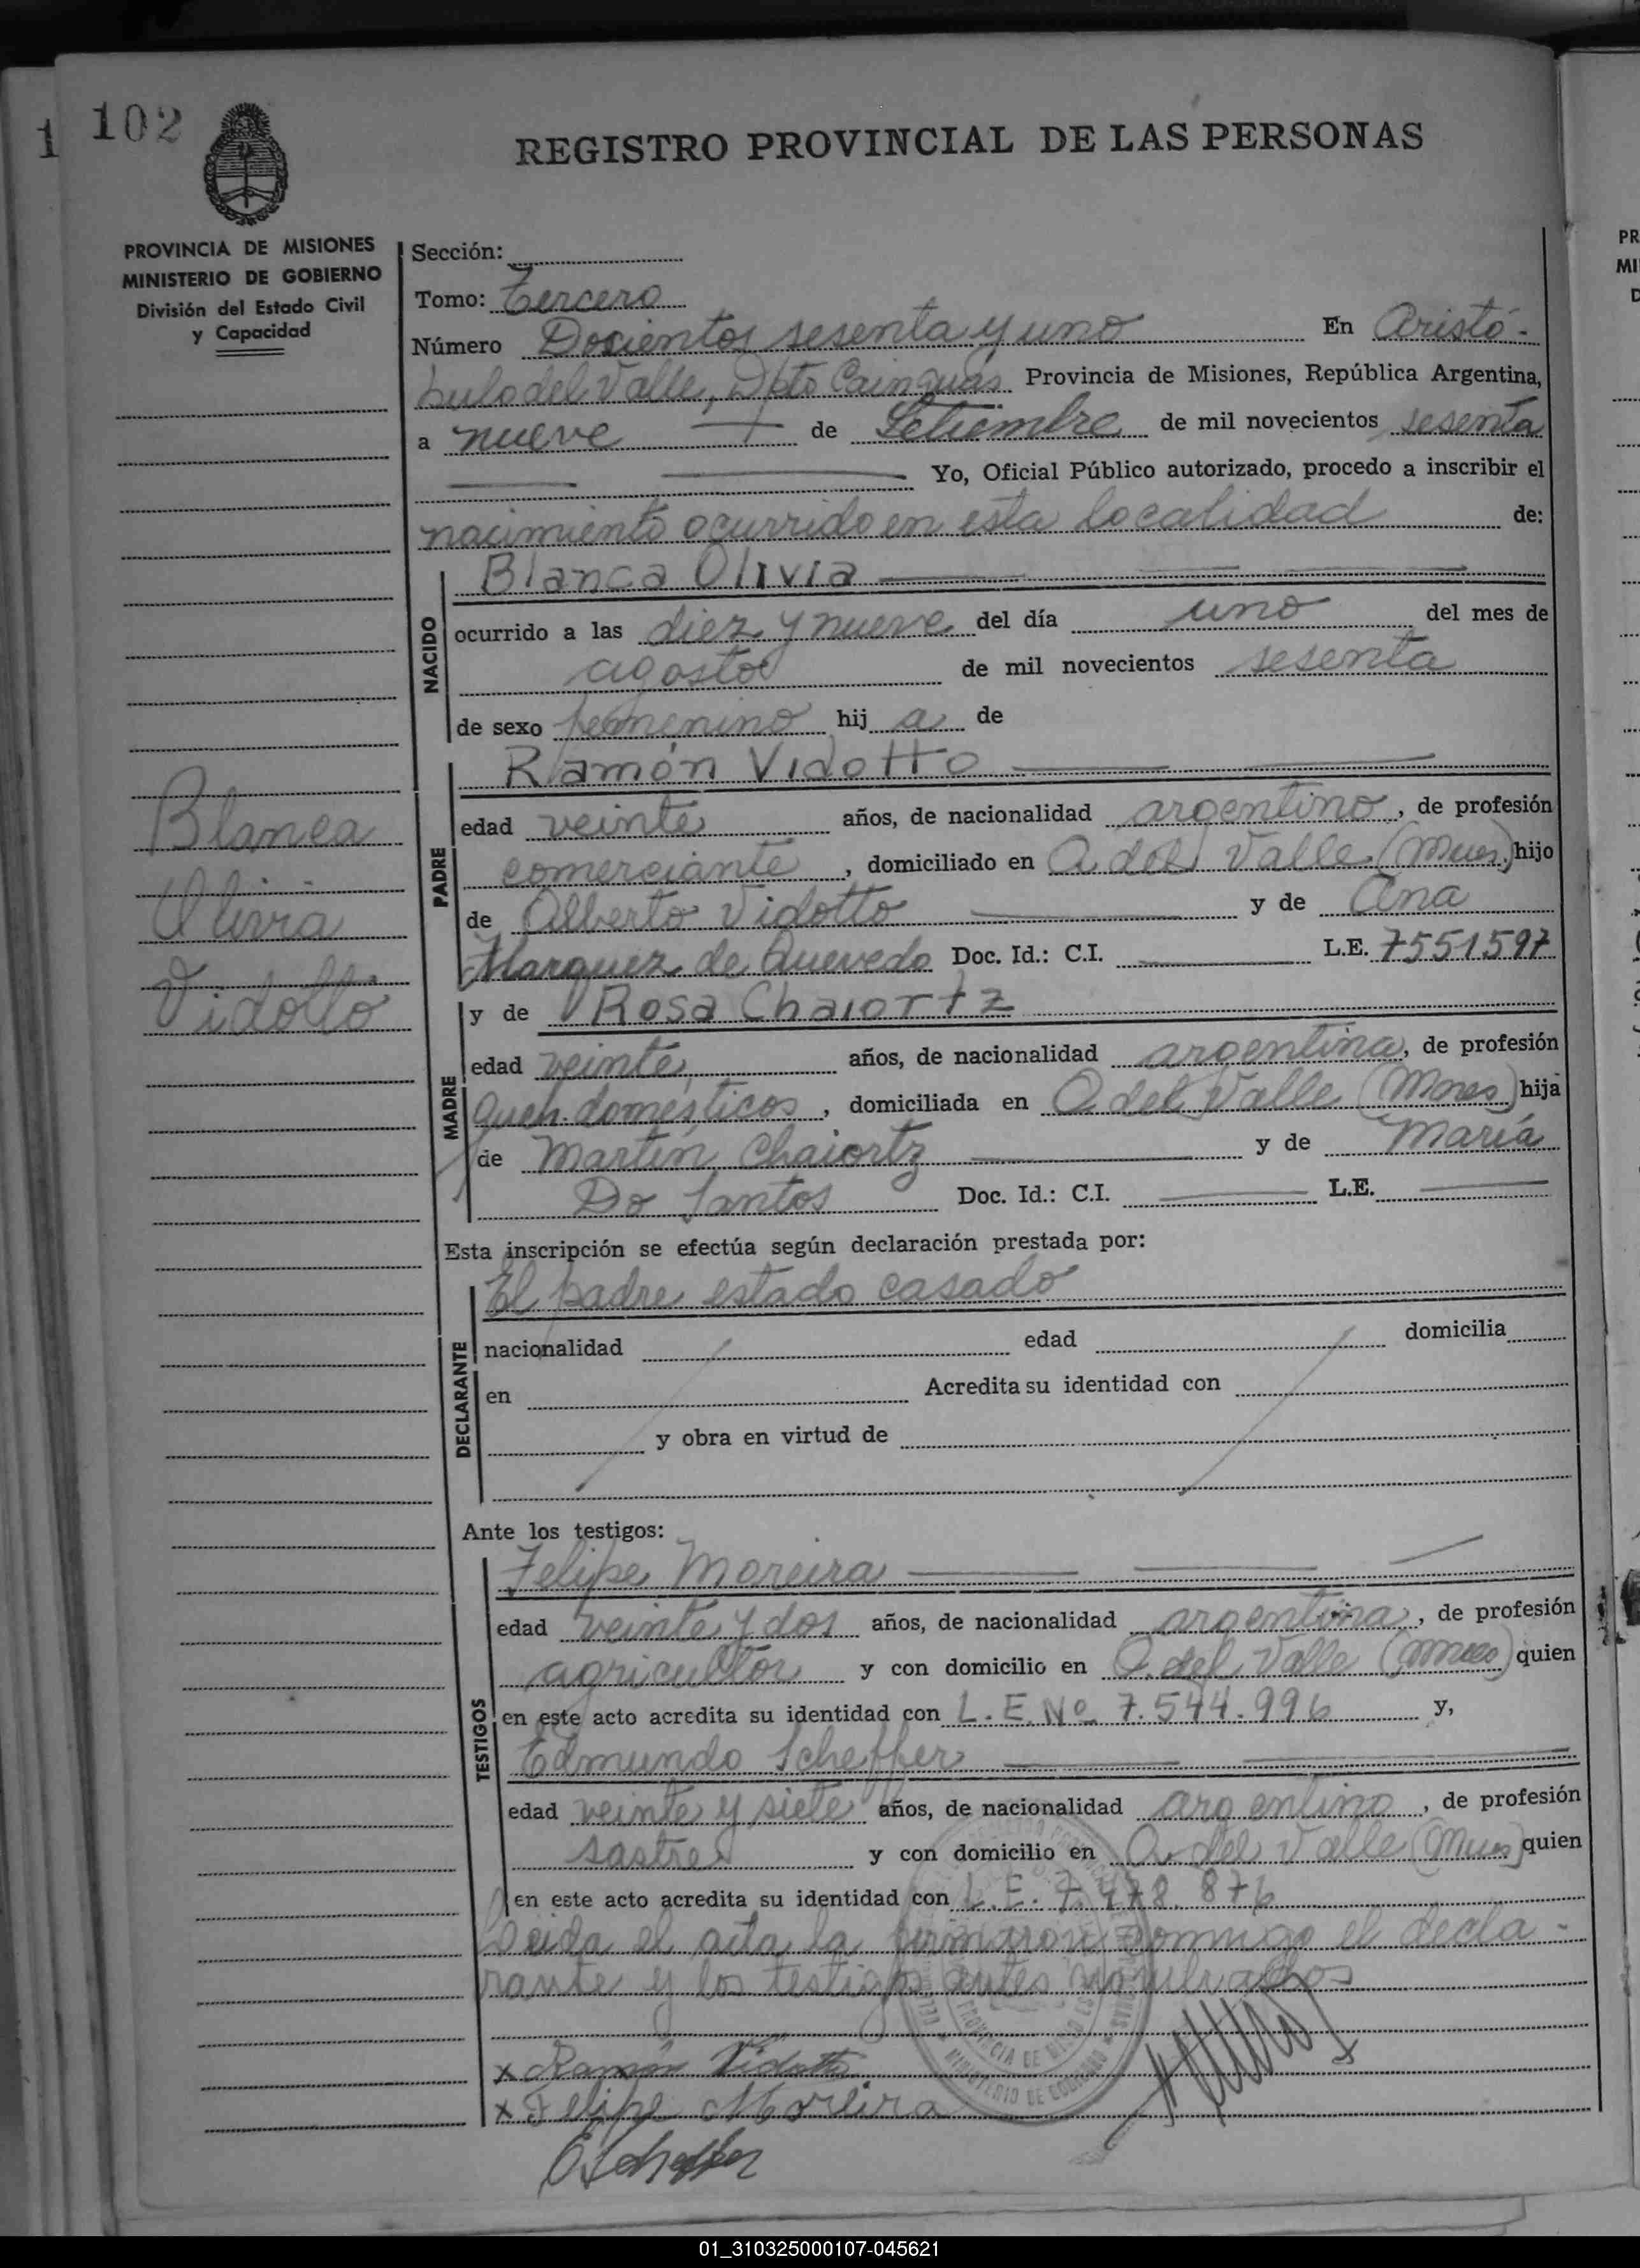 1 102
REGISTRO PROVINCIAL DE LAS PERSONAS
PROVINCIA DE MISIONES
MINISTERIO DE GOBIERNO
División del Estado Civil
y Capacidad
Sección:
Tomo: Tercero
Número Docientos sesenta y uno En Aristó-
bulo del Valle, Dpto Cainguás Provincia de Misiones, República Argentina,
a nueve de Setiembre de mil novecientos sesenta
Yo, Oficial Público autorizado, procedo a inscribir el
nacimiento ocurrido en esta localidad de:
NACIDO
Blanca Olivia
ocurrido a las diez y nueve del día uno del mes de
agosto de mil novecientos sesenta
de sexo femenino hij a de
PADRE
Ramón Vidotto
edad veinte años, de nacionalidad argentino, de profesión
comerciante, domiciliado en A del Valle (Mnes) hijo
de Alberto Vidotto y de Ana
Marquez de Quevedo Doc. Id.: C.I. L.E. 7551597
MADRE
y de Rosa Chaiortz
edad veinte años, de nacionalidad argentina, de profesión
queh. domésticos, domiciliada en A del Valle (Mnes) hija
de Martín Chaiortz y de María
Do Santos Doc. Id.: C.I. L.E.
Blanca
Olivia
Vidotto
Esta inscripción se efectúa según declaración prestada por:
DECLARANTE
El padre estado casado
nacionalidad edad domicilia
en Acredita su identidad con
y obra en virtud de
Ante los testigos:
TESTIGOS
Felipe Moreira
edad veinte y dos años, de nacionalidad argentina, de profesión
agricultor y con domicilio en A. del Valle (Mnes) quien
en este acto acredita su identidad con L.E. Nº 7.544.996 y,
Edmundo Scheffer
edad veinte y siete años, de nacionalidad argentino, de profesión
sastre y con domicilio en A. del Valle (Mnes) quien
en este acto acredita su identidad con L.E. 7.478.876
Leida el acta la firmaron conmigo el decla-
rante y los testigos antes nombrados
x Ramón Vidotto
x Felipe Moreira
EScheffer
PROVINCIA DE MISIONES
MINISTERIO DE GOBIERNO
PR
MI
D
01_310325000107-045621